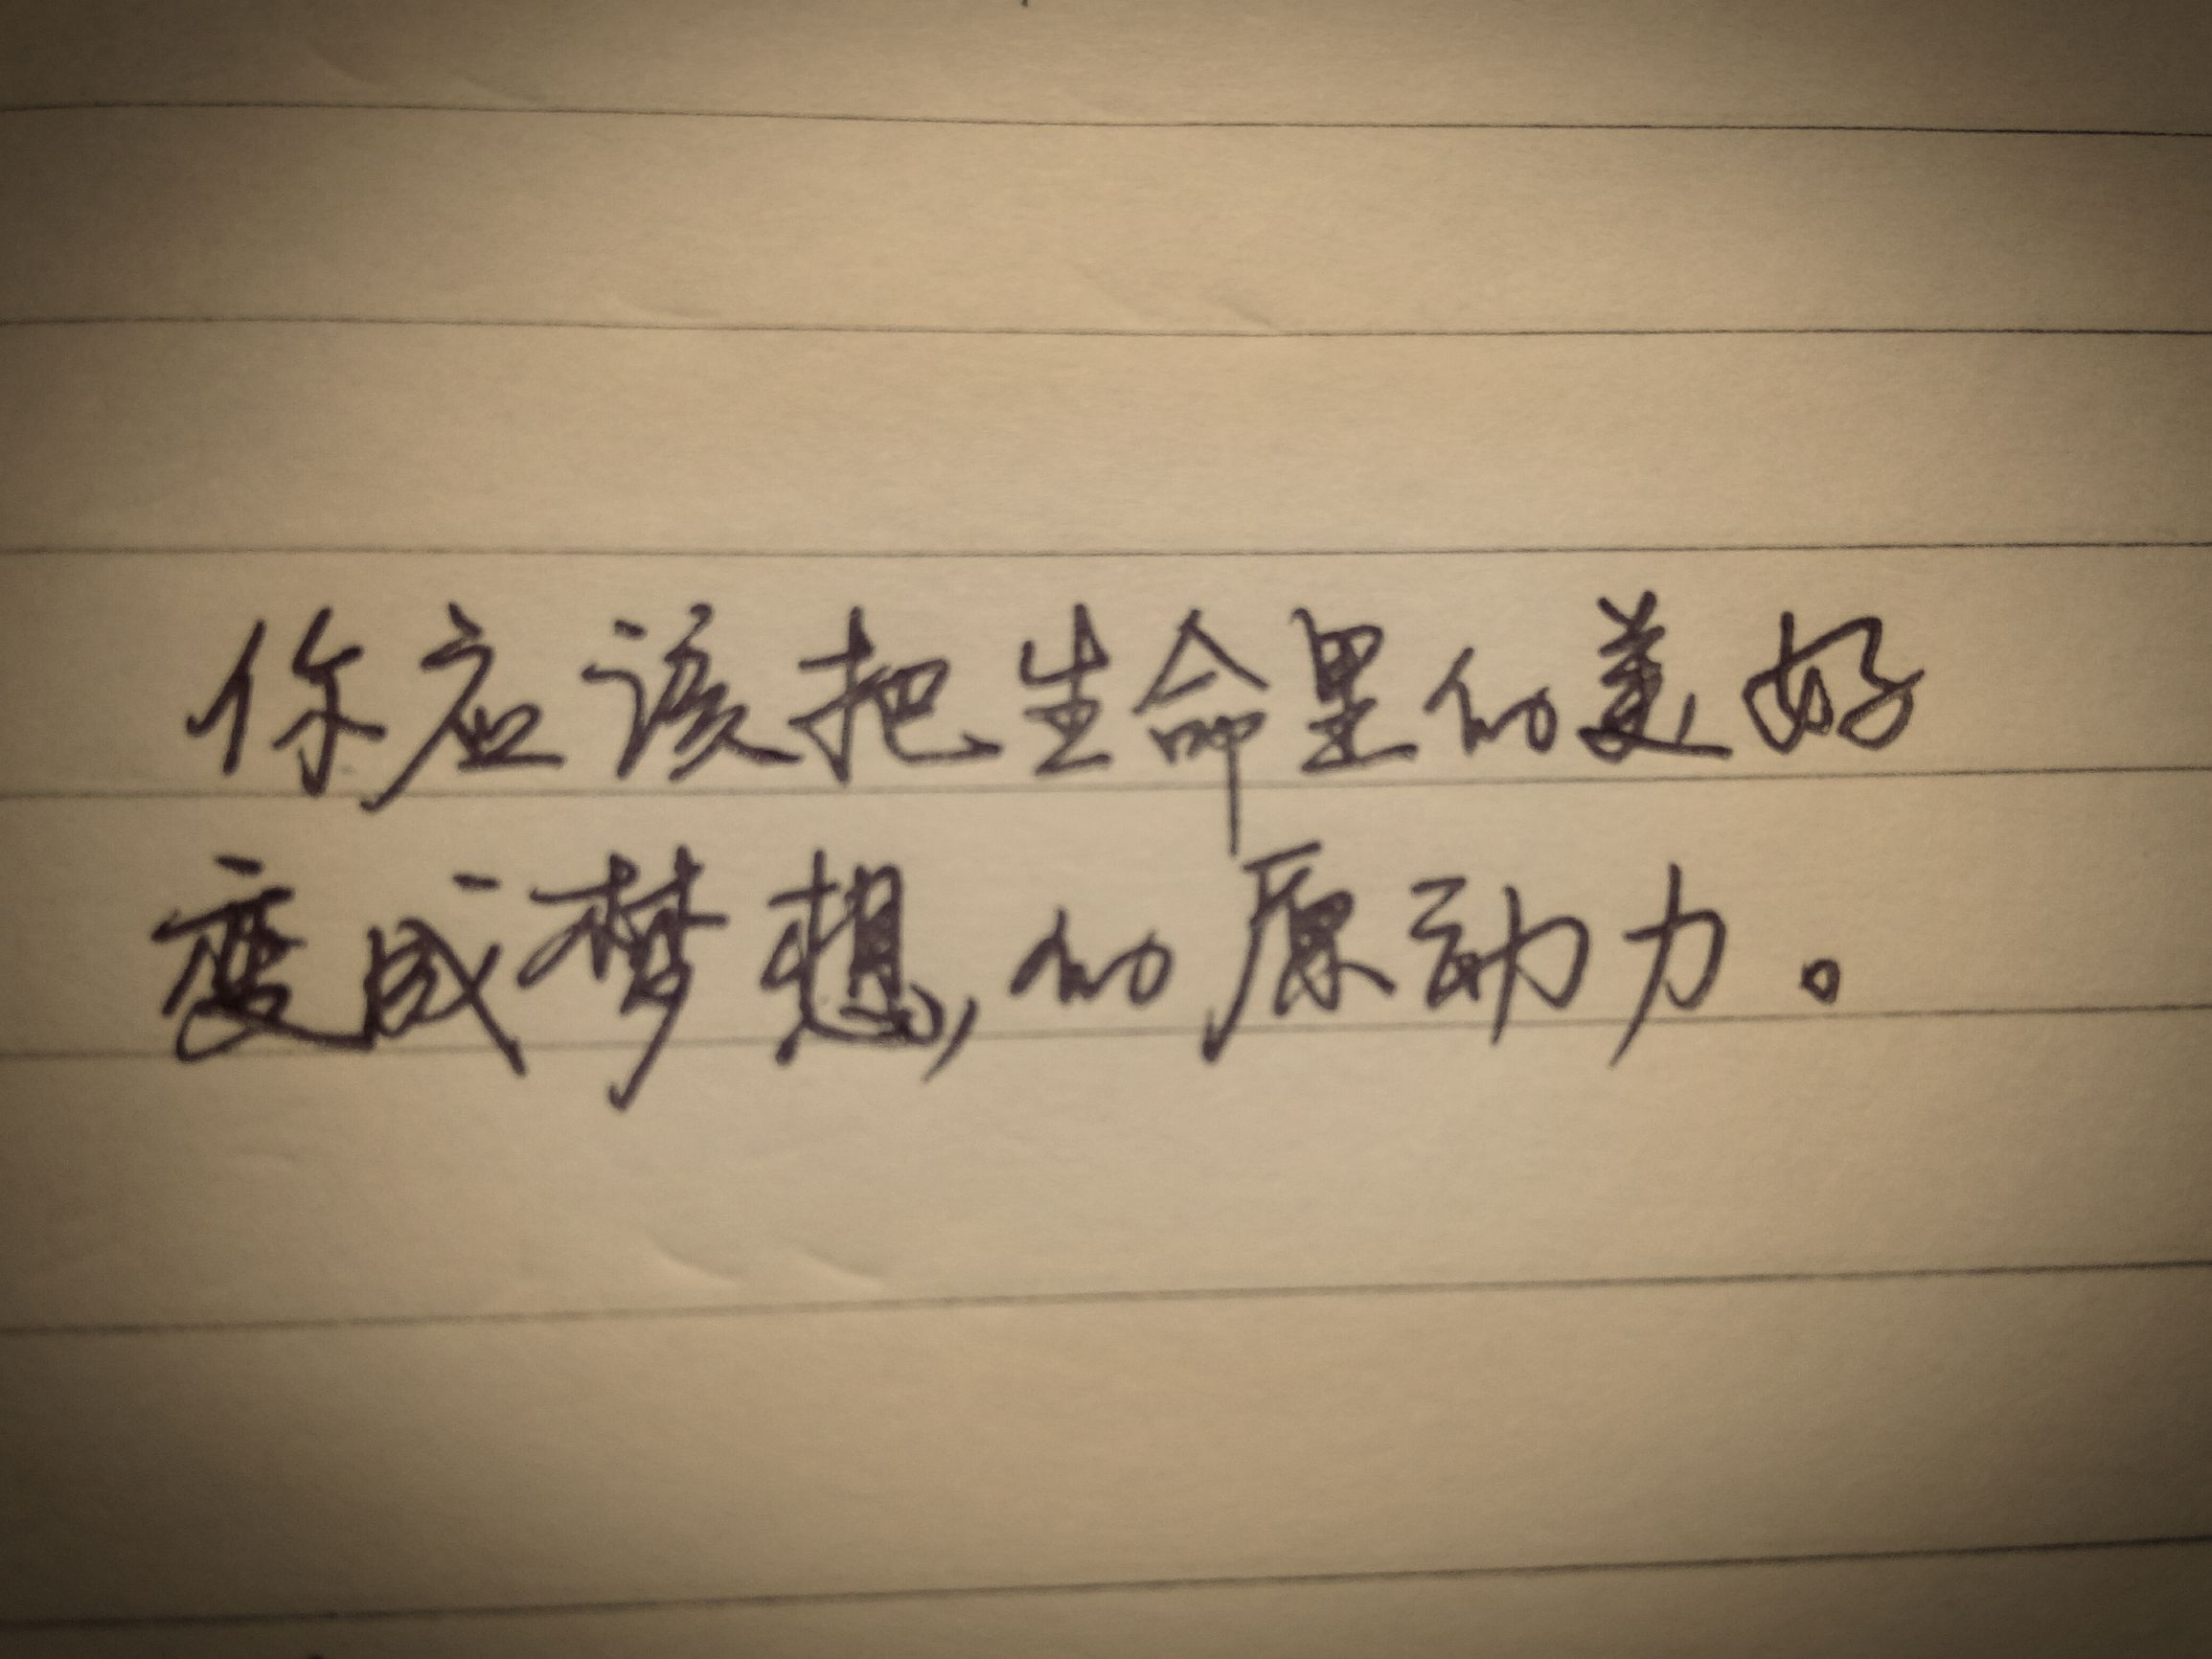 你应该把生命里的美好
变成梦想,的原动力。